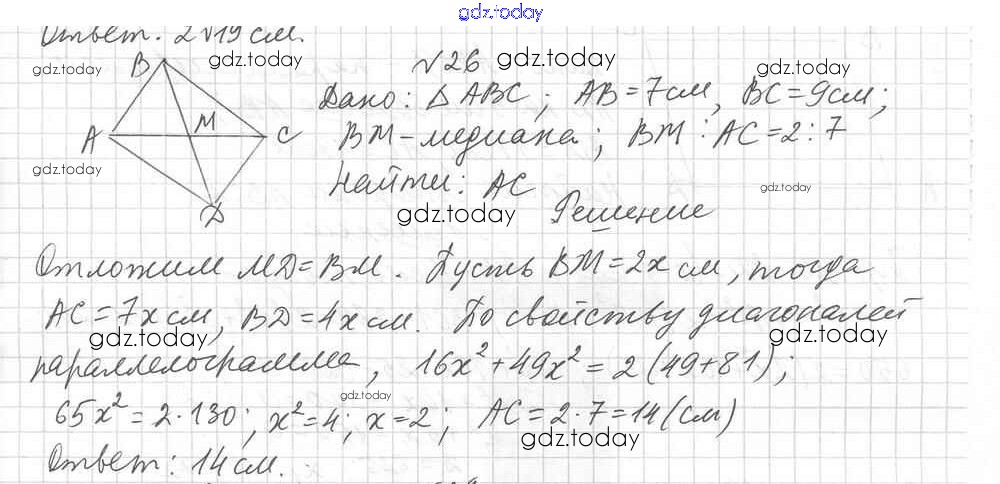 gdz.today
Ответ: 2√19 см.
gdz.today
gdz.today
№26
gdz.today
gdz.today
B
A
M
C
D
Дано: ΔABC; AB=7см, BC=9см;
BM-медиана; BM:AC=2:7
gdz.today
Найти: AC
gdz.today
gdz.today
Решение
Отложим MD=BM. Пусть BM=2x см, тогда
AC=7x см, BD=4x см. По свойству диагоналей
gdz.today
gdz.today
параллелограмма, 16x²+49x²=2(49+81);
gdz.today
65x²=2·130; x²=4; x=2; AC=2·7=14(см)
gdz.today
Ответ: 14 см.